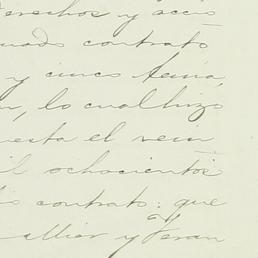 derechos y accio
nado contrato
y cinco tenia,
n, lo cual hizo
esta el vein
il ochocientos
contrato: que
allier y Teran